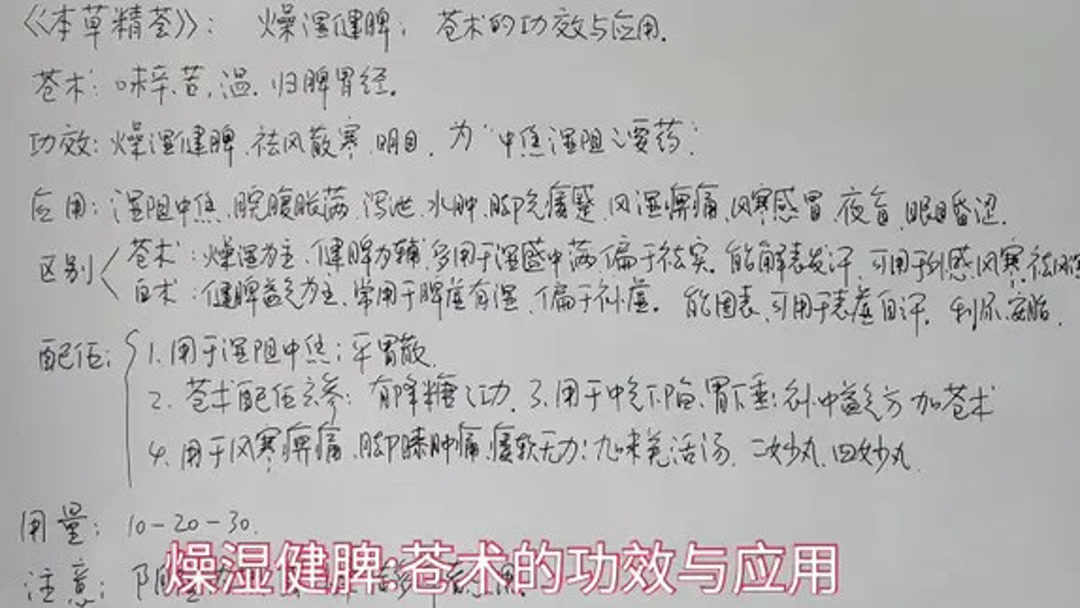 《本草精荟》: 燥湿健脾: 苍术的功效与应用.
苍术: 味辛.苦,温. 归脾胃经.
功效: 燥湿健脾.祛风散寒.明目. 为“中焦湿阻之要药”.
应用: 湿阻中焦.脘腹胀满.泻泄.水肿.脚气痿躄.风湿痹痛.风寒感冒.夜盲.眼目昏涩.
区别
苍术: 燥湿为主.健脾为辅.多用于湿盛中满.偏于祛实.能解表发汗.可用于外感风寒.祛风湿
白术: 健脾益气为主.常用于脾虚有湿.偏于补虚. 能固表.可用于表虚自汗. 利尿.安胎.
配伍:
1. 用于湿阻中焦: 平胃散.
2. 苍术配伍玄参: 有降糖之功. 3. 用于中气下陷.胃下垂: 补中益气方加苍术
4. 用于风寒痹痛.脚膝肿痛.痿软无力: 九味羌活汤. 二妙丸.四妙丸.
用量: 10-20-30.
燥湿健脾:苍术的功效与应用
注意: 阴